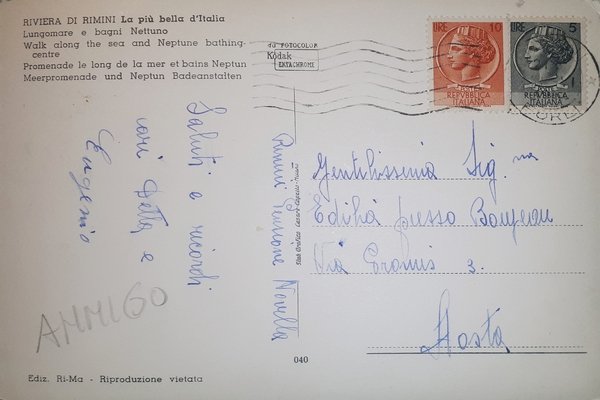 RIVIERA DI RIMINI La più bella d'Italia
Lungomare e bagni Nettuno
Walk along the sea and Neptune bathing-
centre
Promenade le long de la mer et bains Neptun
Meerpromenade und Neptun Badeanstalten
du FOTOCOLOR
Kodak
EKTACHROME
LIRE 10
POSTE
REPUBBLICA
ITALIANA
LIRE 5
POSTE
REPUBBLICA
ITALIANA
Saluti e ricordi
cari Della e
Eugenio
AMMIGO
Rimini Pensione Novella
Gentilissima Sig.na
presso
Via 3.
Aosta
040
Ediz. Ri-Ma - Riproduzione vietata